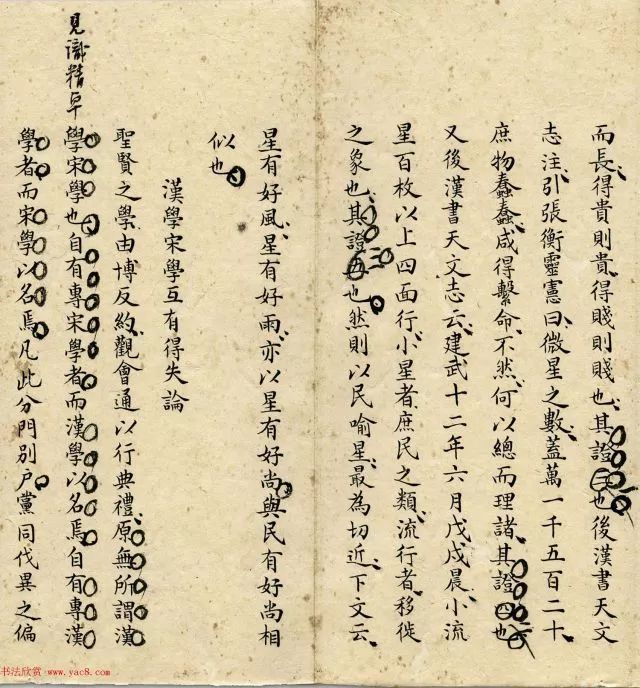 而長得貴則貴得賤則賤也其證三也後漢書天文
志注引張衡靈憲曰微星之數蓋萬一千五百二十
庶物蠢蠢咸得繫命不然何以總而理諸其證四也
又後漢書天文志云建武十二年六月戊戌晨小流
星百枚以上四面行小星者庶民之類流行者移徙
之象也其證五也然則以民喻星最為切近下文云
星有好風星有好雨亦以星有好尚與民有好尚相
似也
漢學宋學互有得失論
聖賢之學由博反約觀會通以行典禮原無所謂漢
學宋學也自有專宋學者而漢學以名焉自有專漢
學者而宋學以名焉凡此分門別户黨同伐異之偏
見識精卓
书法欣赏 www.yac8.com